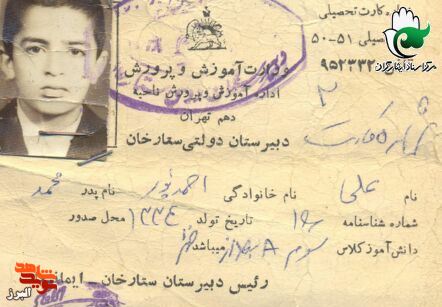 کارت تحصیلی
مرکز اسناد ایثارگران
صیلی ۵۱-۵۰
وزارت آموزش و پرورش
اداره آموزش و پرورش ناحیه
دهم تهران
۲
دبیرستان دولتی ستارخان
شماره کارت
نام علی نام خانوادگی احمدپور نام پدر محمد
شماره شناسنامه تاریخ تولد ۱۳۳۴ محل صدور
دانش‌آموز کلاس سوم A میباشد
رئیس دبیرستان ستارخان - ایمانی
البرز